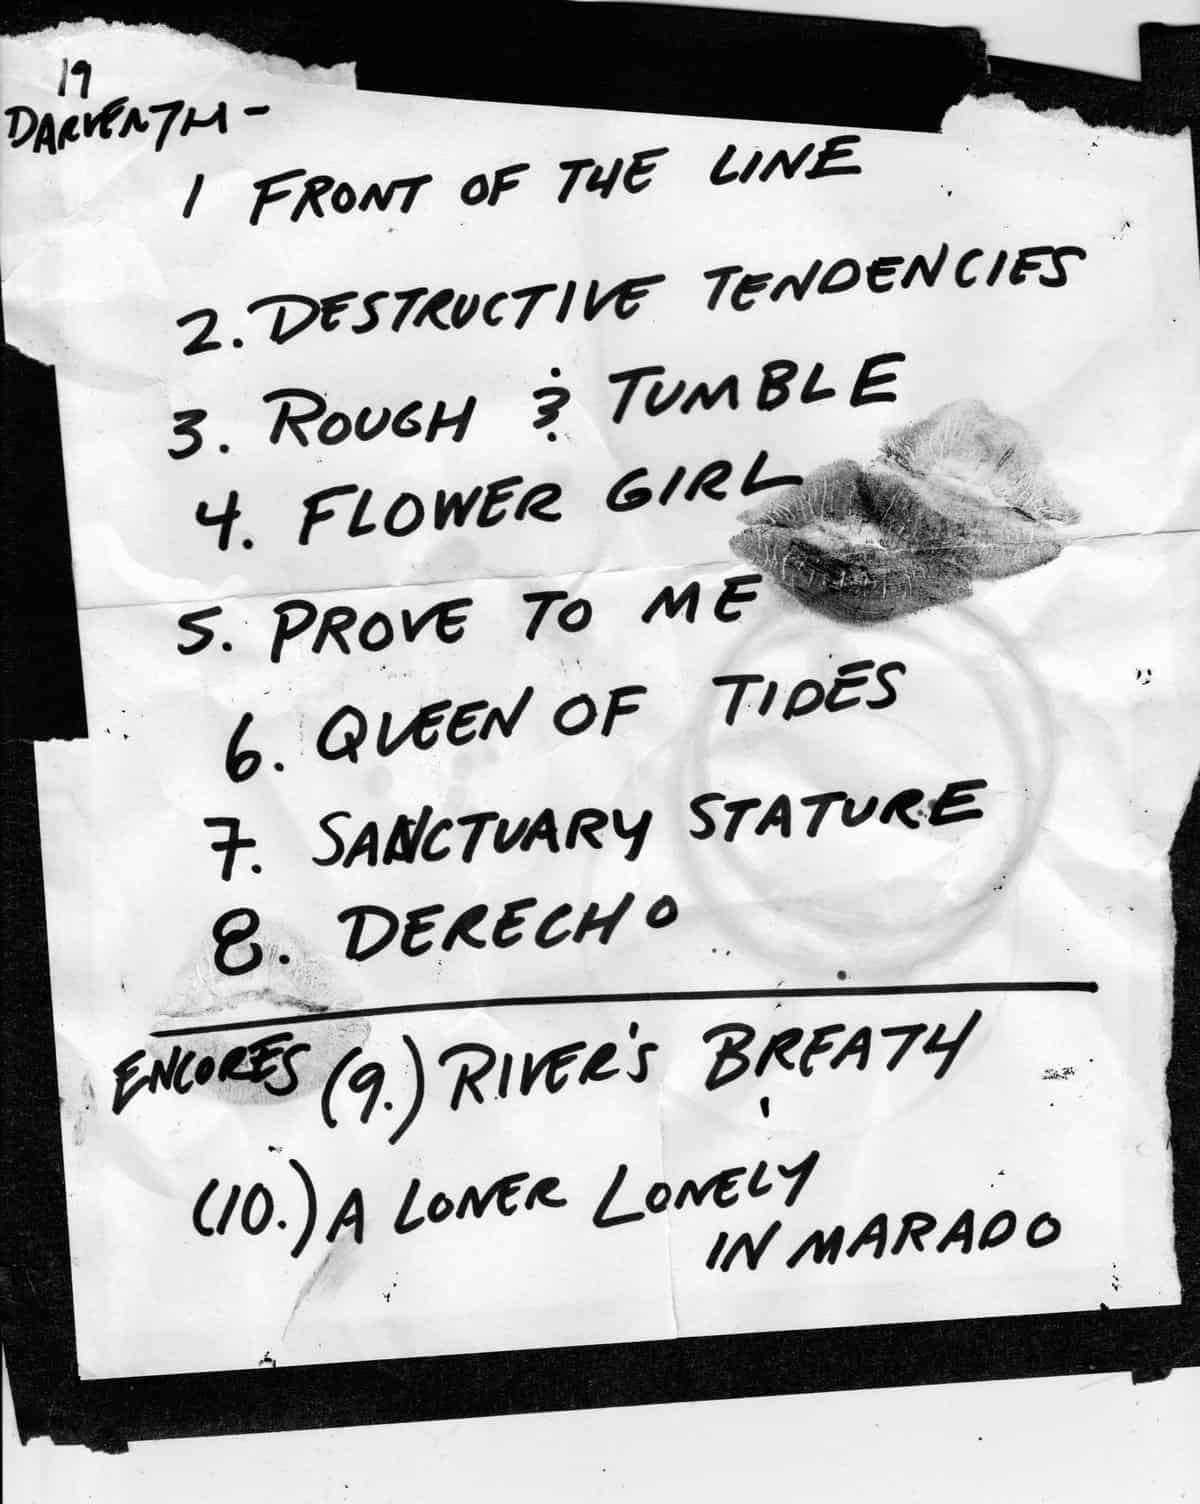 19
DARVEN7H -
1 FRONT OF THE LINE
2. DESTRUCTIVE TENDENCIES
3. ROUGH & TUMBLE
4. FLOWER GIRL
5. PROVE TO ME
6. QUEEN OF TIDES
7. SANCTUARY STATURE
8. DERECHO
ENCORES (9.) RIVER'S BREATH
(10.) A LONER LONELY
IN MARADO